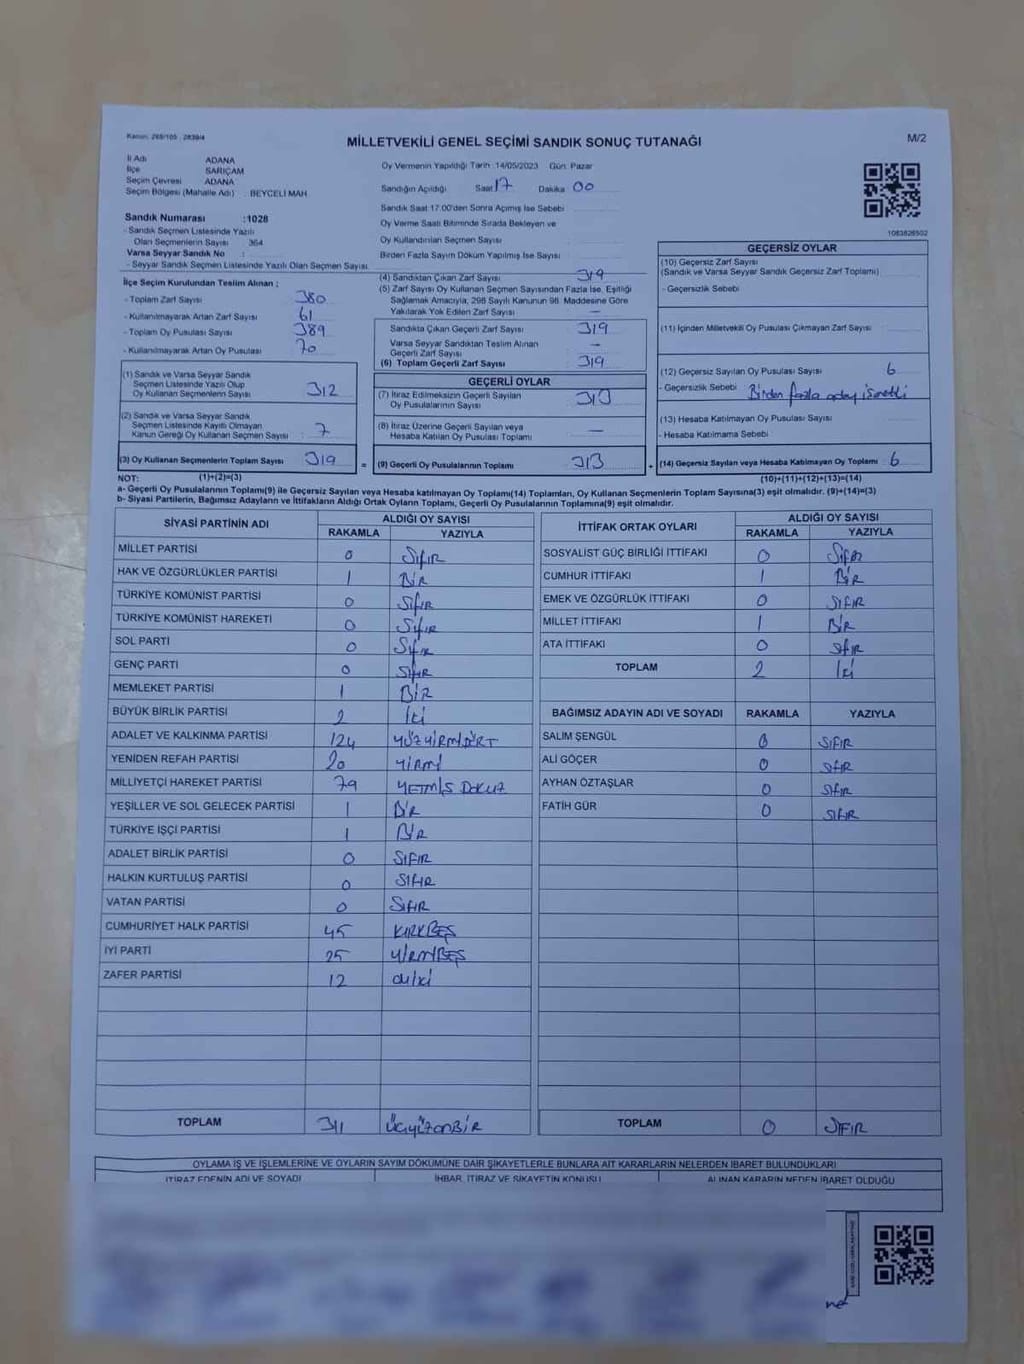 Kanun: 298/105 - 2839/4
MİLLETVEKİLİ GENEL SEÇİMİ SANDIK SONUÇ TUTANAĞI
M/2
İl Adı ADANA
İlçe SARIÇAM
Seçim Çevresi ADANA
Seçim Bölgesi (Mahalle Adı) : BEYCELİ MAH.
Sandık Numarası :1028
- Sandık Seçmen Listesinde Yazılı
Olan Seçmenlerin Sayısı 364
Varsa Seyyar Sandık No :
- Seyyar Sandık Seçmen Listesinde Yazılı Olan Seçmen Sayısı
Oy Vermenin Yapıldığı Tarih :14/05/2023 Gün: Pazar
Sandığın Açıldığı Saat 17 Dakika 00
Sandık Saat 17.00'den Sonra Açılmış İse Sebebi
Oy Verme Saati Bitiminde Sırada Bekleyen ve
Oy Kullandırılan Seçmen Sayısı
Birden Fazla Sayım Döküm Yapılmış İse Sayısı
1083828502
İlçe Seçim Kurulundan Teslim Alınan ;
- Toplam Zarf Sayısı 380
- Kullanılmayarak Artan Zarf Sayısı 61
- Toplam Oy Pusulası Sayısı 389
- Kullanılmayarak Artan Oy Pusulası 70
(1) Sandık ve Varsa Seyyar Sandık
Seçmen Listesinde Yazılı Olup
Oy Kullanan Seçmenlerin Sayısı 312
(2) Sandık ve Varsa Seyyar Sandık
Seçmen Listesinde Kayıtlı Olmayan
Kanun Gereği Oy Kullanan Seçmen Sayısı 7
(3) Oy Kullanan Seçmenlerin Toplam Sayısı 319
(4) Sandıktan Çıkan Zarf Sayısı 319
(5) Zarf Sayısı Oy Kullanan Seçmen Sayısından Fazla İse, Eşitliği
Sağlamak Amacıyla, 298 Sayılı Kanunun 98. Maddesine Göre
Yakılarak Yok Edilen Zarf Sayısı —
Sandıkta Çıkan Geçerli Zarf Sayısı 319
Varsa Seyyar Sandıktan Teslim Alınan
Geçerli Zarf Sayısı —
(6) Toplam Geçerli Zarf Sayısı 319
GEÇERLİ OYLAR
(7) İtiraz Edilmeksizin Geçerli Sayılan
Oy Pusulalarının Sayısı 313
(8) İtiraz Üzerine Geçerli Sayılan veya
Hesaba Katılan Oy Pusulası Toplamı —
= (9) Geçerli Oy Pusulalarının Toplamı 313
GEÇERSİZ OYLAR
(10) Geçersiz Zarf Sayısı
(Sandık ve Varsa Seyyar Sandık Geçersiz Zarf Toplamı)
- Geçersizlik Sebebi
(11) İçinden Milletvekili Oy Pusulası Çıkmayan Zarf Sayısı
(12) Geçersiz Sayılan Oy Pusulası Sayısı 6
- Geçersizlik Sebebi Birden fazla aday işaretli
(13) Hesaba Katılmayan Oy Pusulası Sayısı
- Hesaba Katılmama Sebebi
+ (14) Geçersiz Sayılan veya Hesaba Katılmayan Oy Toplamı 6
NOT: (1)+(2)=(3) (10)+(11)+(12)+(13)=(14)
a- Geçerli Oy Pusulalarının Toplamı(9) ile Geçersiz Sayılan veya Hesaba katılmayan Oy Toplam(14) Toplamları, Oy Kullanan Seçmenlerin Toplam Sayısına(3) eşit olmalıdır. (9)+(14)=(3)
b- Siyasi Partilerin, Bağımsız Adayların ve İttifakların Aldığı Ortak Oyların Toplamı, Geçerli Oy Pusulalarının Toplamına(9) eşit olmalıdır.
SİYASİ PARTİNİN ADI ALDIĞI OY SAYISI
RAKAMLA YAZIYLA
MİLLET PARTİSİ 0 SIFIR
HAK VE ÖZGÜRLÜKLER PARTİSİ 1 BİR
TÜRKİYE KOMÜNİST PARTİSİ 0 SIFIR
TÜRKİYE KOMÜNİST HAREKETİ 0 SIFIR
SOL PARTİ 0 SIFIR
GENÇ PARTİ 0 SIFIR
MEMLEKET PARTİSİ 1 BİR
BÜYÜK BİRLİK PARTİSİ 2 İki
ADALET VE KALKINMA PARTİSİ 124 YÜZYİRMİDÖRT
YENİDEN REFAH PARTİSİ 20 YİRMİ
MİLLİYETÇİ HAREKET PARTİSİ 79 YETMİŞ DOKUZ
YEŞİLLER VE SOL GELECEK PARTİSİ 1 BİR
TÜRKİYE İŞÇİ PARTİSİ 1 BİR
ADALET BİRLİK PARTİSİ 0 SIFIR
HALKIN KURTULUŞ PARTİSİ 0 SIFIR
VATAN PARTİSİ 0 SIFIR
CUMHURİYET HALK PARTİSİ 45 KIRKBEŞ
İYİ PARTİ 25 YİRMİBEŞ
ZAFER PARTİSİ 12 oniki
TOPLAM 311 ÜÇYÜZONBİR
İTTİFAK ORTAK OYLARI ALDIĞI OY SAYISI
RAKAMLA YAZIYLA
SOSYALİST GÜÇ BİRLİĞİ İTTİFAKI 0 SIFIR
CUMHUR İTTİFAKI 1 BİR
EMEK VE ÖZGÜRLÜK İTTİFAKI 0 SIFIR
MİLLET İTTİFAKI 1 BİR
ATA İTTİFAKI 0 SIFIR
TOPLAM 2 İki
BAĞIMSIZ ADAYIN ADI VE SOYADI RAKAMLA YAZIYLA
SALİM ŞENGÜL 0 SIFIR
ALİ GÖÇER 0 SIFIR
AYHAN ÖZTAŞLAR 0 SIFIR
FATİH GÜR 0 SIFIR
TOPLAM 0 SIFIR
OYLAMA İŞ VE İŞLEMLERİNE VE OYLARIN SAYIM DÖKÜMÜNE DAİR ŞİKAYETLERLE BUNLARA AİT KARARLARIN NELERDEN İBARET BULUNDUKLARI
İTİRAZ EDENİN ADI VE SOYADI İHBAR, İTİRAZ VE ŞİKAYETİN KONUSU ALINAN KARARIN NEDEN İBARET OLDUĞU